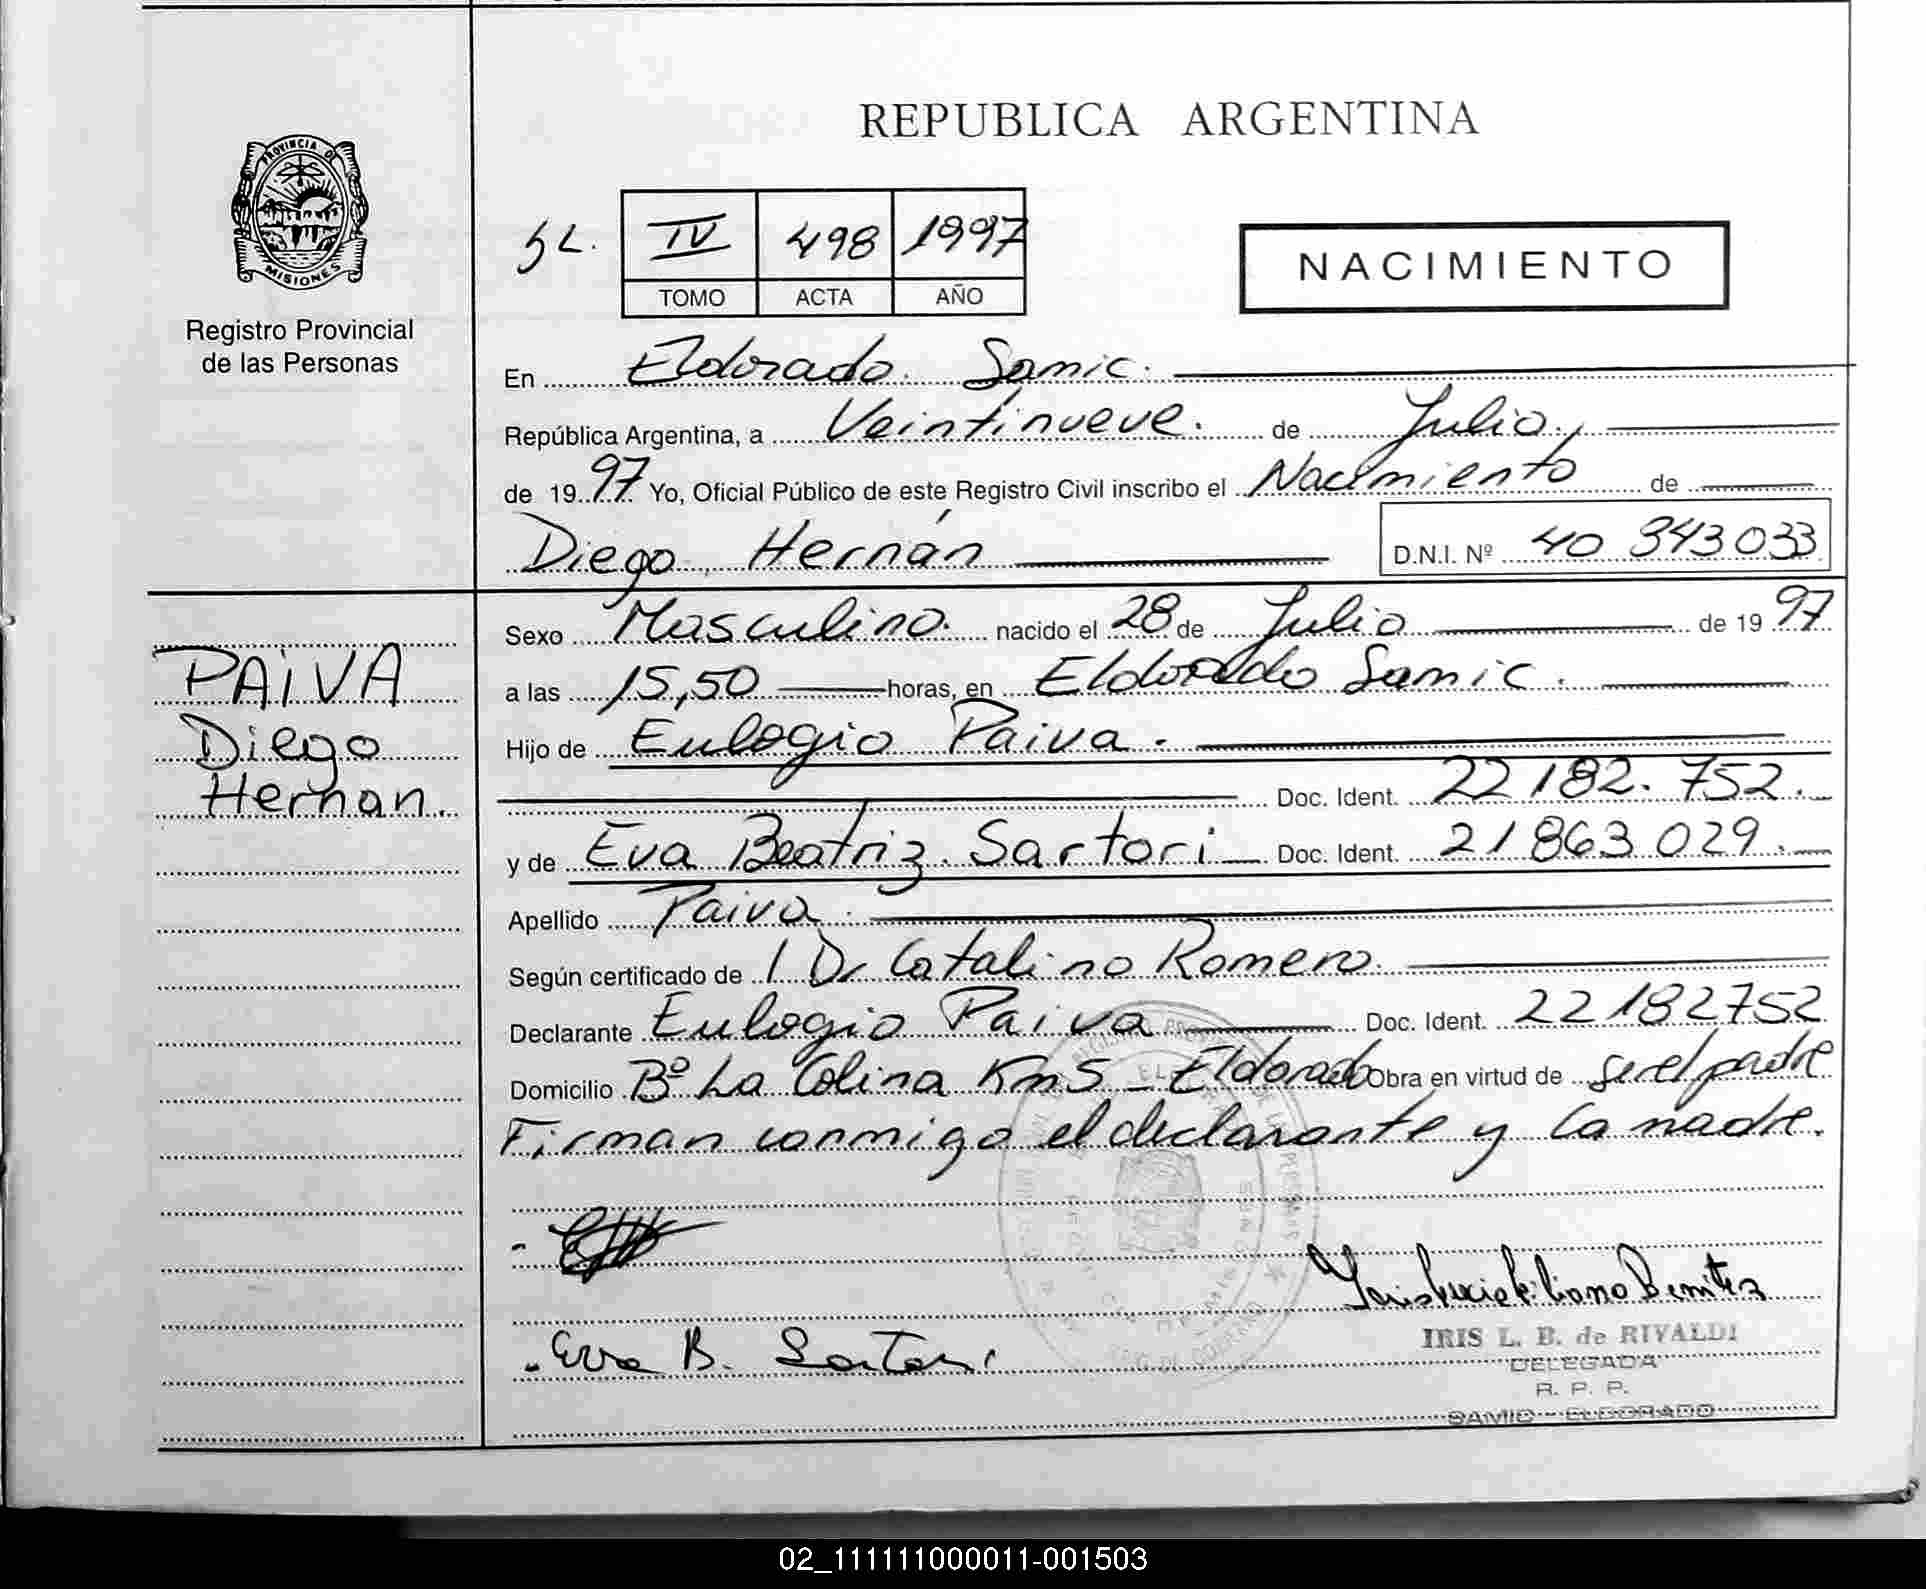 REPUBLICA ARGENTINA
PROVINCIA DE
MISIONES
Registro Provincial
de las Personas
IV 498 1997
TOMO ACTA AÑO
NACIMIENTO
En Eldorado Samic.
República Argentina, a Veintinueve. de Julio,
de 1997 Yo, Oficial Público de este Registro Civil inscribo el Nacimiento de
Diego Hernán D.N.I. Nº 40 343 033
PAIVA
Diego
Hernan.
Sexo Masculino. nacido el 28 de Julio de 1997
a las 15,50 horas, en Eldorado Samic.
Hijo de Eulogio Paiva.
Doc. Ident. 22 182. 752.
y de Eva Beatriz Sartori Doc. Ident. 21 863 029.
Apellido Paiva.
Según certificado de Dr Catalino Romero.
Declarante Eulogio Paiva Doc. Ident. 22 182752
Domicilio Bº La Colina Km 5 - Eldorado Obra en virtud de ser el padre
Firman conmigo el declarante y la madre.
Eva B. Sartori
IRIS L. B. de RIVALDI
DELEGADA
R. P. P.
SAMIC - ELDORADO
02_111111000011-001503